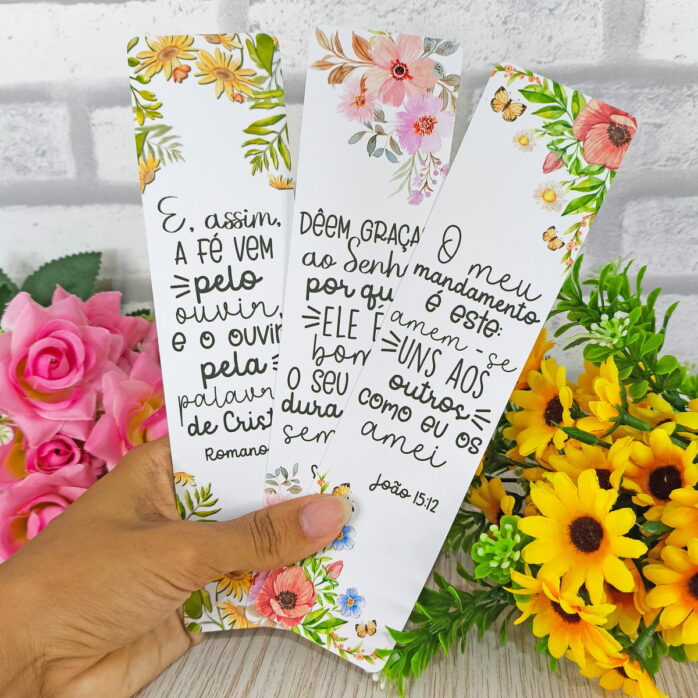 E, assim,
A FÉ VEM
pelo
ouvir,
E O OUVIR
pela
palavra
DE CRISTO
Romanos
DÊEM GRAÇAS
ao Senhor
por que
ELE É
bom
O SEU
dura
sem
O meu
mandamento
é este:
amem-se
UNS AOS
outros
COMO EU OS
amei
João 15:12